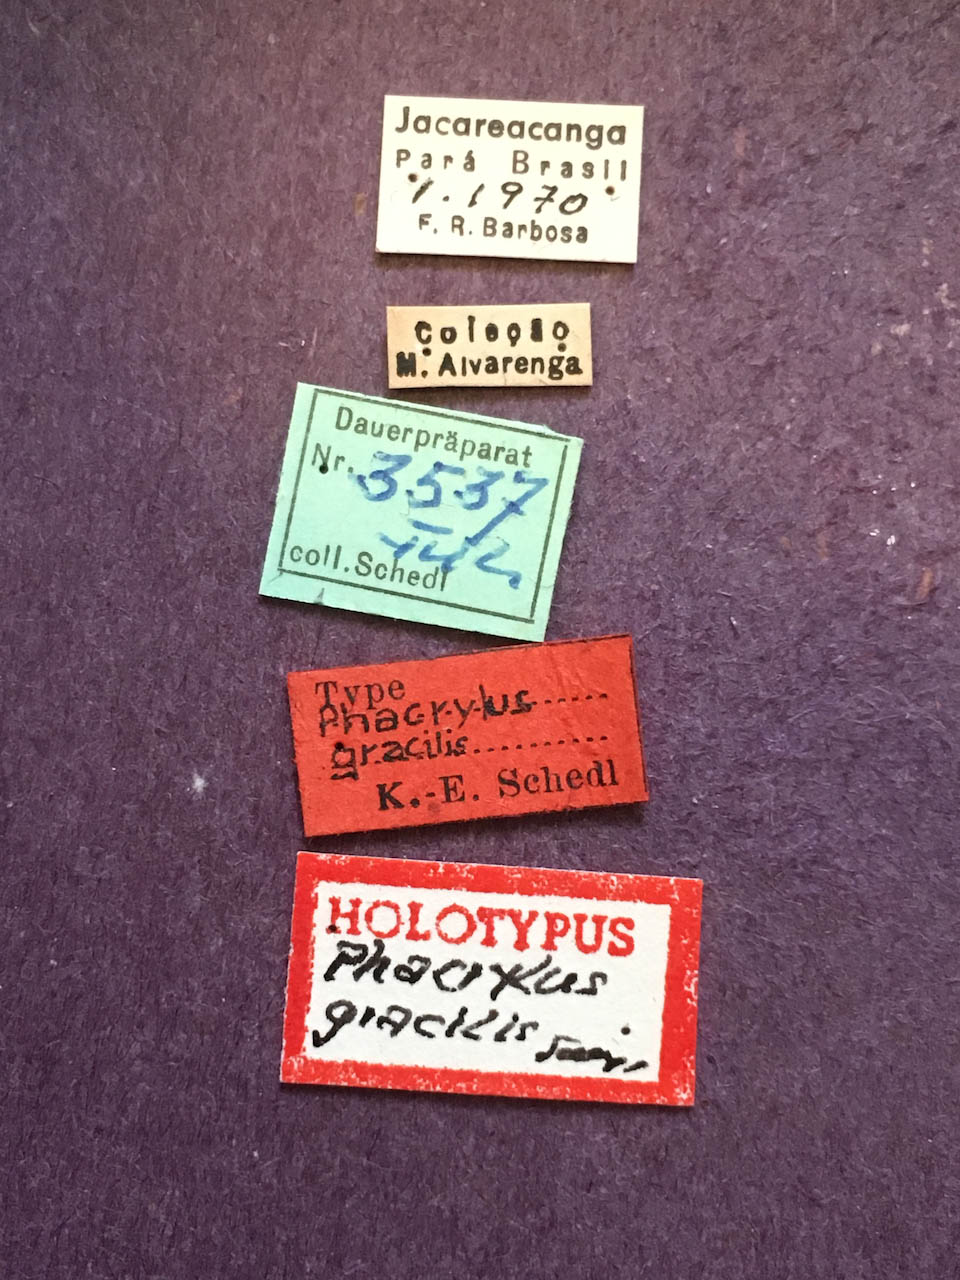 Jacareacanga
Pará Brasil
1.1970
F. R. Barbosa
Coleção
M. Alvarenga
Dauerpräparat
Nr. 3537
coll. Schedl
Type
Phacrylus
gracilis
K.-E. Schedl
HOLOTYPUS
Phacrylus
gracilis